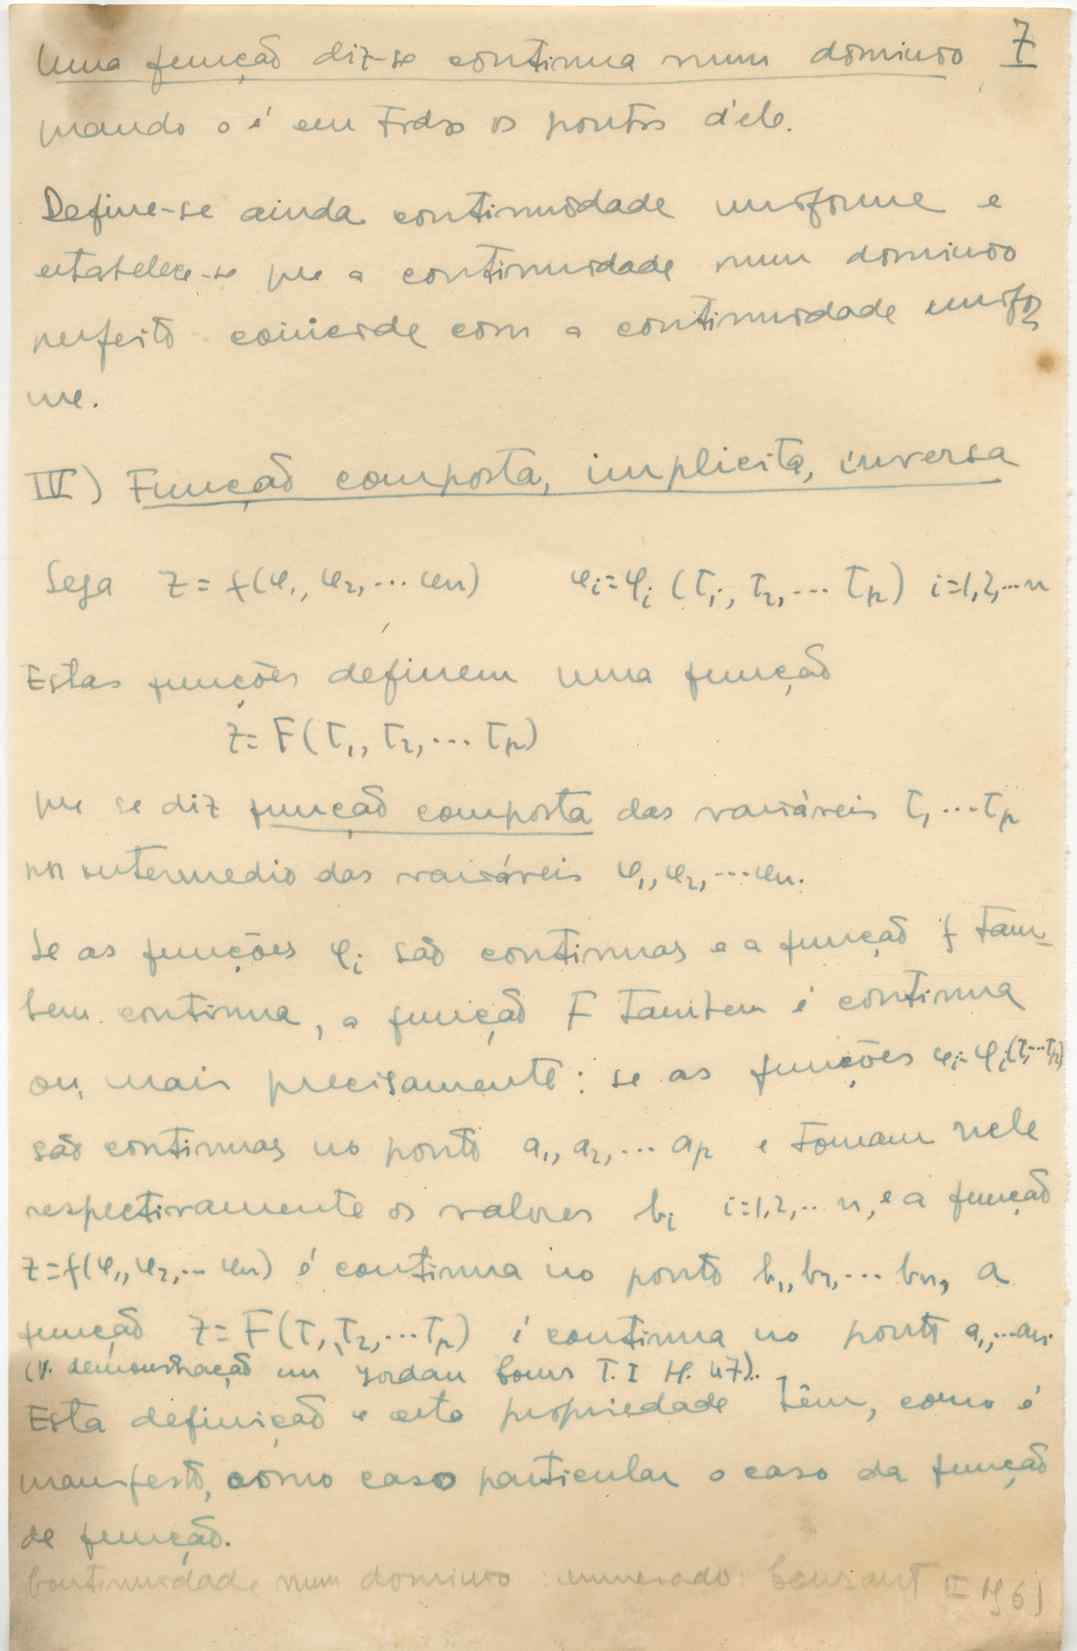 Uma função diz-se continua num dominio 7
quando o é em todos os pontos d'ele.
Define-se ainda continuidade uniforme e
estabelece-se que a continuidade num dominio
perfeito coincide com a continuidade unifor
me.
IV) Função composta, implicita, inversa
Seja z = f(φ₁, φ₂, ... φn) φi = φi (τ₁, τ₂, ... τp) i=1,2,...n
Estas funções definem uma função
z = F(τ₁, τ₂, ... τp)
que se diz função composta das variáveis τ₁ ... τp
por intermedio das variáveis φ₁, φ₂, ... φn.
Se as funções φi são continuas e a função f tam-
bem continua, a função F tambem é continua
ou, mais precisamente: se as funções φi = φi (τ₁...τp)
são continuas no ponto a₁, a₂, ... ap e tomam nele
respectivamente os valores bi i=1,2,.. n, e a função
z=f(φ₁, φ₂, ... φn) é continua no ponto b₁, b₂, ... bn, a
função z = F(τ₁, τ₂, ... τp) é continua no ponto a₁, ... an.
(V. demonstração em Jordan Cours T. I 47).
Esta definição e esta propriedade têm, como é
manifesto, como caso particular o caso da função
de função.
Continuidade num dominio : enunciado : Goursat I